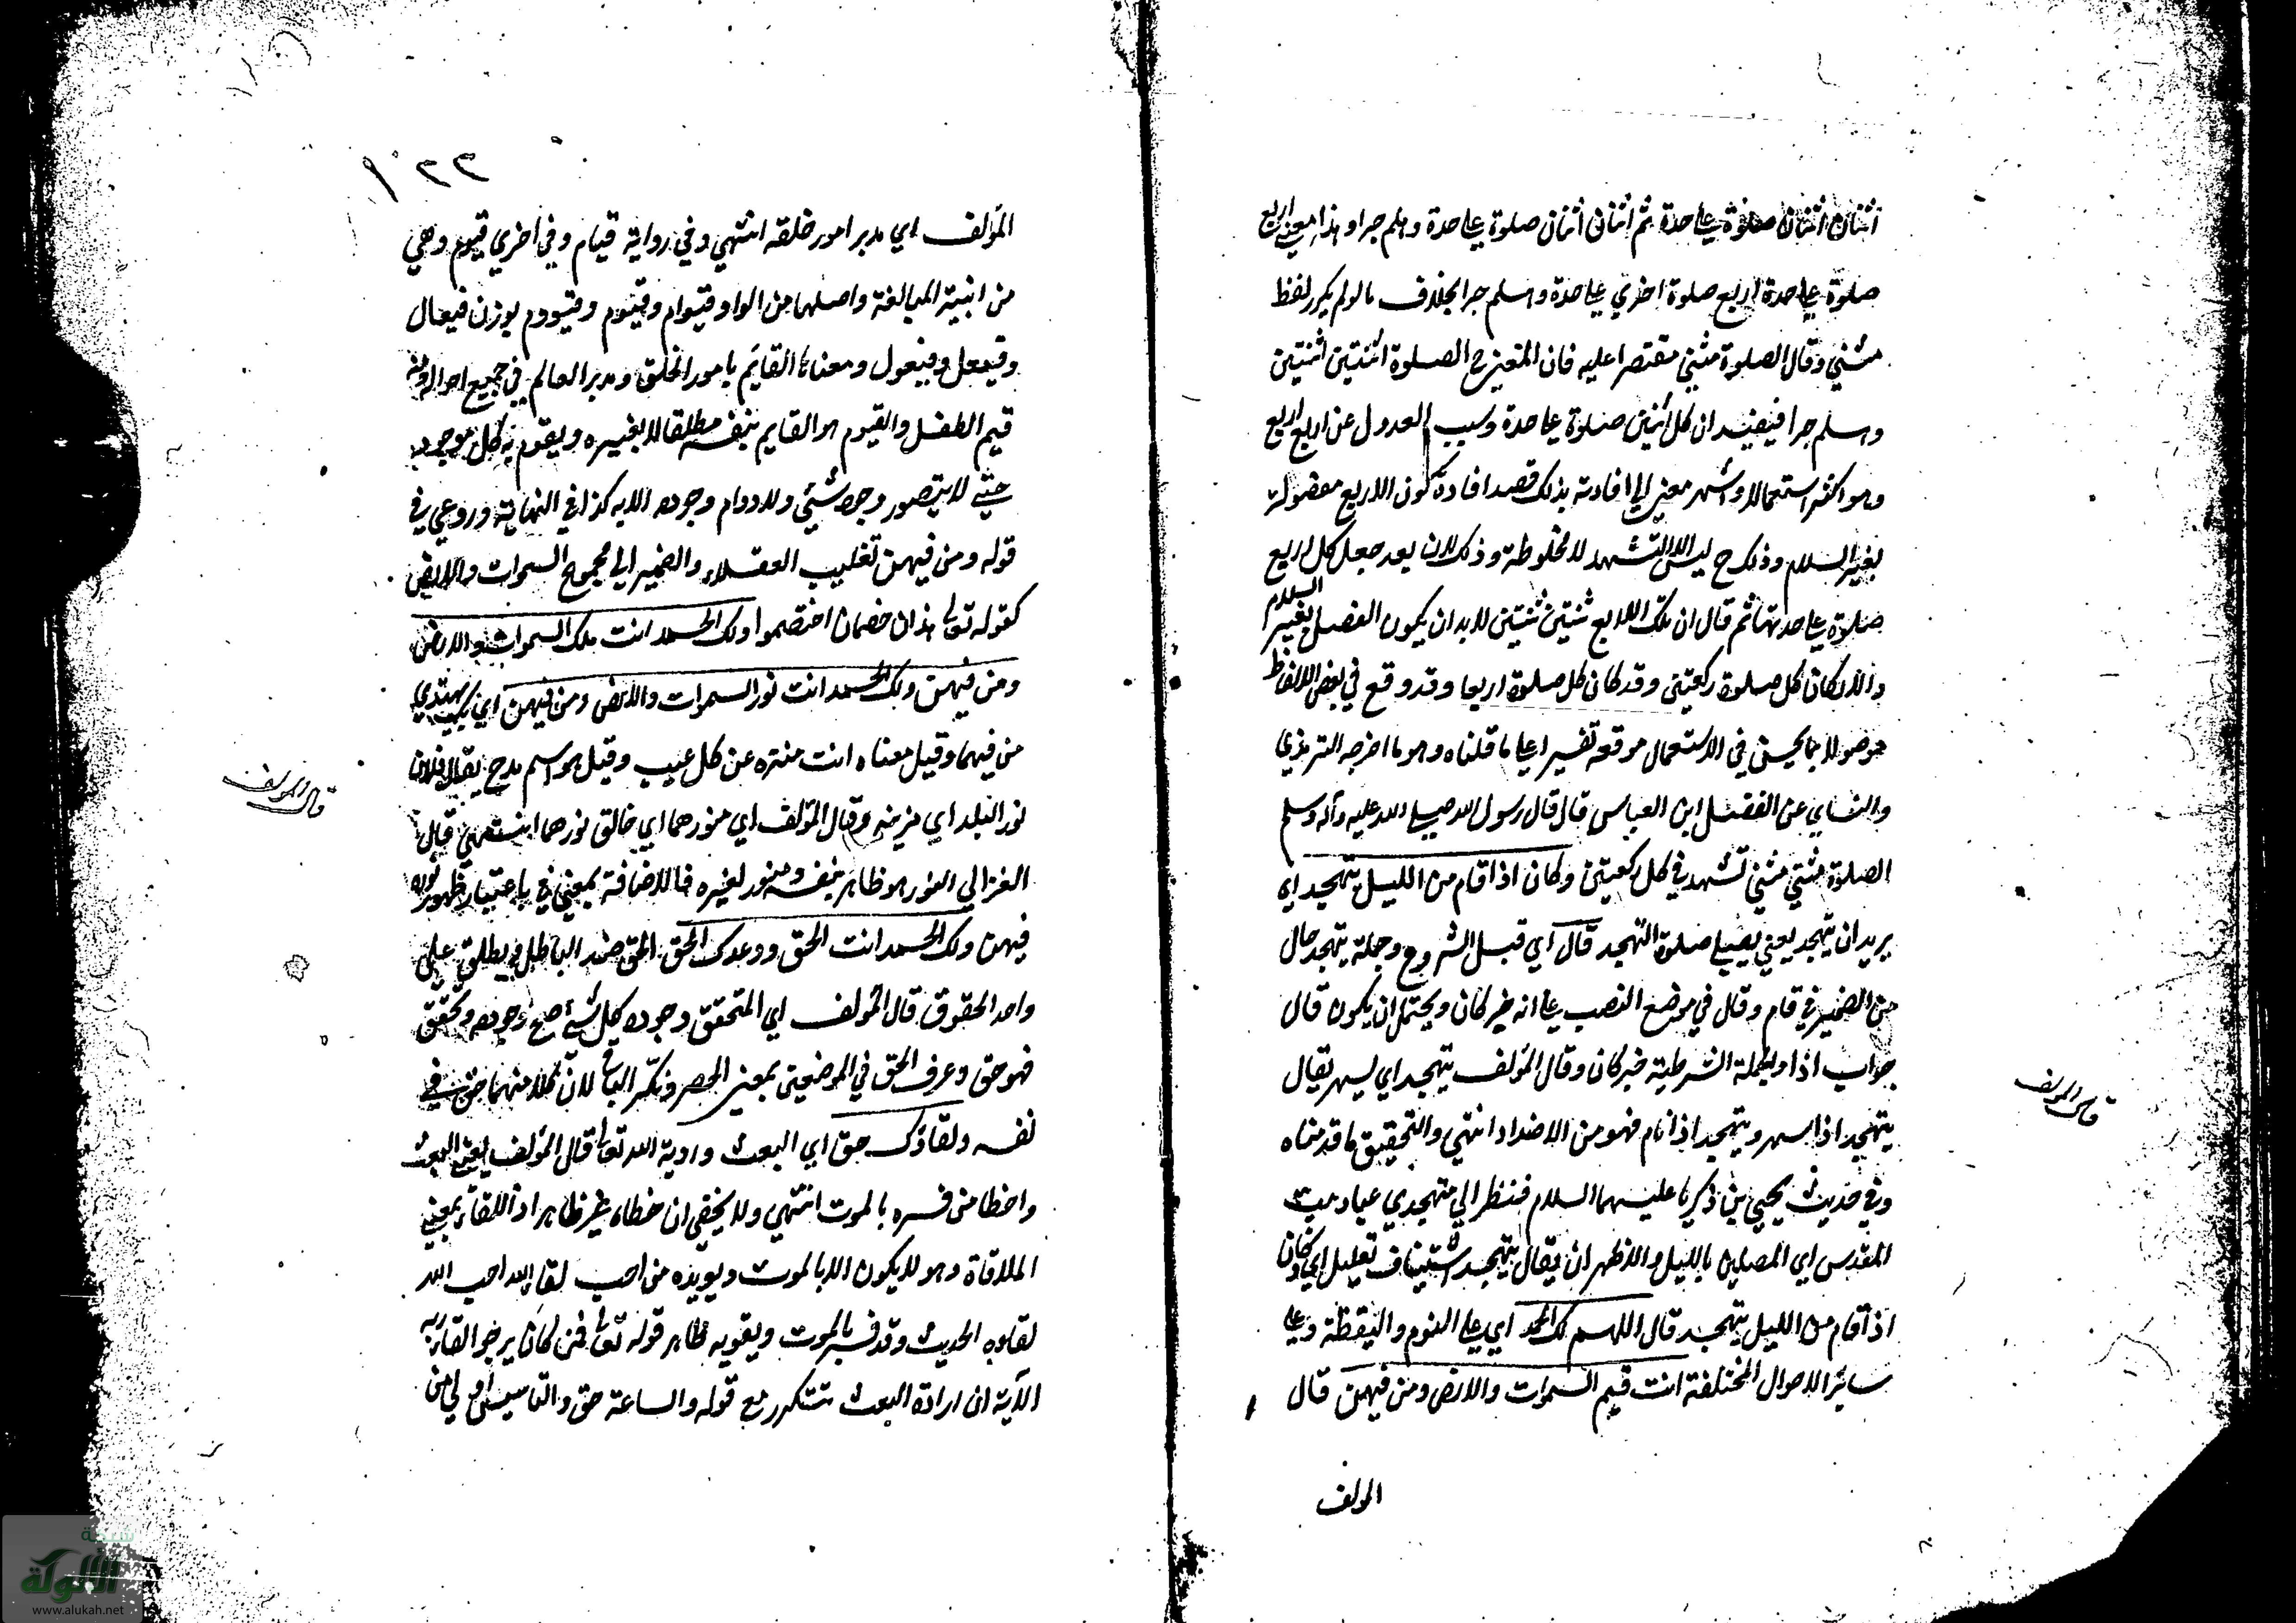 اثنان اثنان صلوة علحدة ثم اثنان اثنان صلوة علحدة وهلم جرا وهذا معنى اربع
صلوة علحدة اربع صلوة اخري علحدة وهلم جرا بخلاف ما لو لم يكرر لفظ
مثني وقال الصلوة مثني مقتصرا عليه فان المعني ح الصلوة اثنتين اثنتين
وهلم جرا فيفيد ان كل اثنين صلوة علحدة وسبب العدول عن اربع اربع
وهو اكثر استعمالا واشهر معني الي افادته بذلك قصد افادة كون الاربع مفصولة
بغير السلام وذلك ح ليس الا التشهد لا مخلوطة وذلك لان بعد جعل كل اربع
صلوة علحدتها ثم قال ان تلك الاربع ثنتين ثنتين لا بد ان يكون الفصل بغير السلام
والا لكان كل صلوة ركعتين وقد كان كل صلوة اربعا وقد وقع في بعض الالفاظ
موصولا بما يحسن في الاستعمال موقعه تفسيرا علي ما قلناه وهو ما اخرجه الترمذي
والنسائي عن الفضل ابن العباس قال قال رسول الله صلي الله عليه وآله وسلم
الصلوة مثني مثني تشهد في كل ركعتين وكان اذا قام من الليل يتهجد اي
يريد ان يتهجد يعني يصلي صلوة التهجد قال اي قبل الشروع وجملة يتهجد حال
من الضمير في قام وقال في موضع النصب علي انه خبر كان ويحتمل ان يكون قال
جواب اذا والجملة الشرطية خبر كان وقال المؤلف يتهجد اي يسهر يقال
يتهجد اذا سهر ويتهجد اذا نام فهو من الاضداد انتهي والتحقيق ما قدمناه
وفي حديث يحيي بن زكريا عليهما السلام فنظر الي متهجدي عباد بيت
المقدس اي المصلين بالليل والاظهر ان يقال يتهجد استيناف تعليل اي وكان
اذا قام من الليل يتهجد قال اللهم لك الحمد اي علي النوم واليقظة وعلي
سائر الاحوال المختلفة انت قيم السموات والارض ومن فيهن قال
المولف
قال المولف
٢٢
المؤلف اي مدبر امور خلقه انتهي وفي رواية قيام وفي اخري قيوم وهي
من ابنية المبالغة واصلها من الواو قيوام وقيوم وقيووم بوزن فيعال
وفيعل وفيعول ومعناها القايم بامور الخلق ومدبر العالم في جميع احواله ومنه
قيم الطفل والقيوم هو القايم بنفسه مطلقا لا بغيره ويقوم به كل موجود
حتي لا يتصور وجود شئ ولا دوام وجوده الا به كذا في النهاية وروعي في
قوله ومن فيهن تغليب العقلاء والضمير الي مجموع السموات والارض
كقوله تعالى هذان خصمان اختصموا ولك الحمد انت ملك السموات والارض
ومن فيهن ولك الحمد انت نور السموات والارض ومن فيهن اي بك يهتدي
من فيهما وقيل معناه انت منزه عن كل عيب وقيل هو اسم مدح يقال فلان
نور البلد اي مزينه وقال المؤلف اي منورهما اي خالق نورهما انتهي قال
الغزالي النور هو ظاهر بنفسه ومنور لغيره فالاضافة بمعني في باعتبار ظهور نوره
فيهن ولك الحمد انت الحق ووعدك الحق الحق ضد الباطل ويطلق علي
واحد الحقوق قال المؤلف اي المتحقق وجوده كل شئ صح وجوده وتحقق
فهو حق وعرف الحق في الموضعين بمعني الحصر ونكر الباقي لان كلا منهما حق في
نفسه ولقاؤك حق اي البعث وروية الله تعالى قال المؤلف يعني البعث
واخطا من فسره بالموت انتهي ولا يخفي ان خطاه غير ظاهر اذ اللقاء بمعني
الملاقاة وهو لا يكون الا بالموت ويويده من احب لقاء الله احب الله
لقاوه الحديث وقد فسر بالموت ويقويه ظاهر قوله تعالى فمن كان يرجو لقاء ربه
الآية ان ارادة البعث تتكرر مع قوله والساعة حق والتاسيس اولي من
قال المولف
شبكة
الألوكة
www.alukah.net